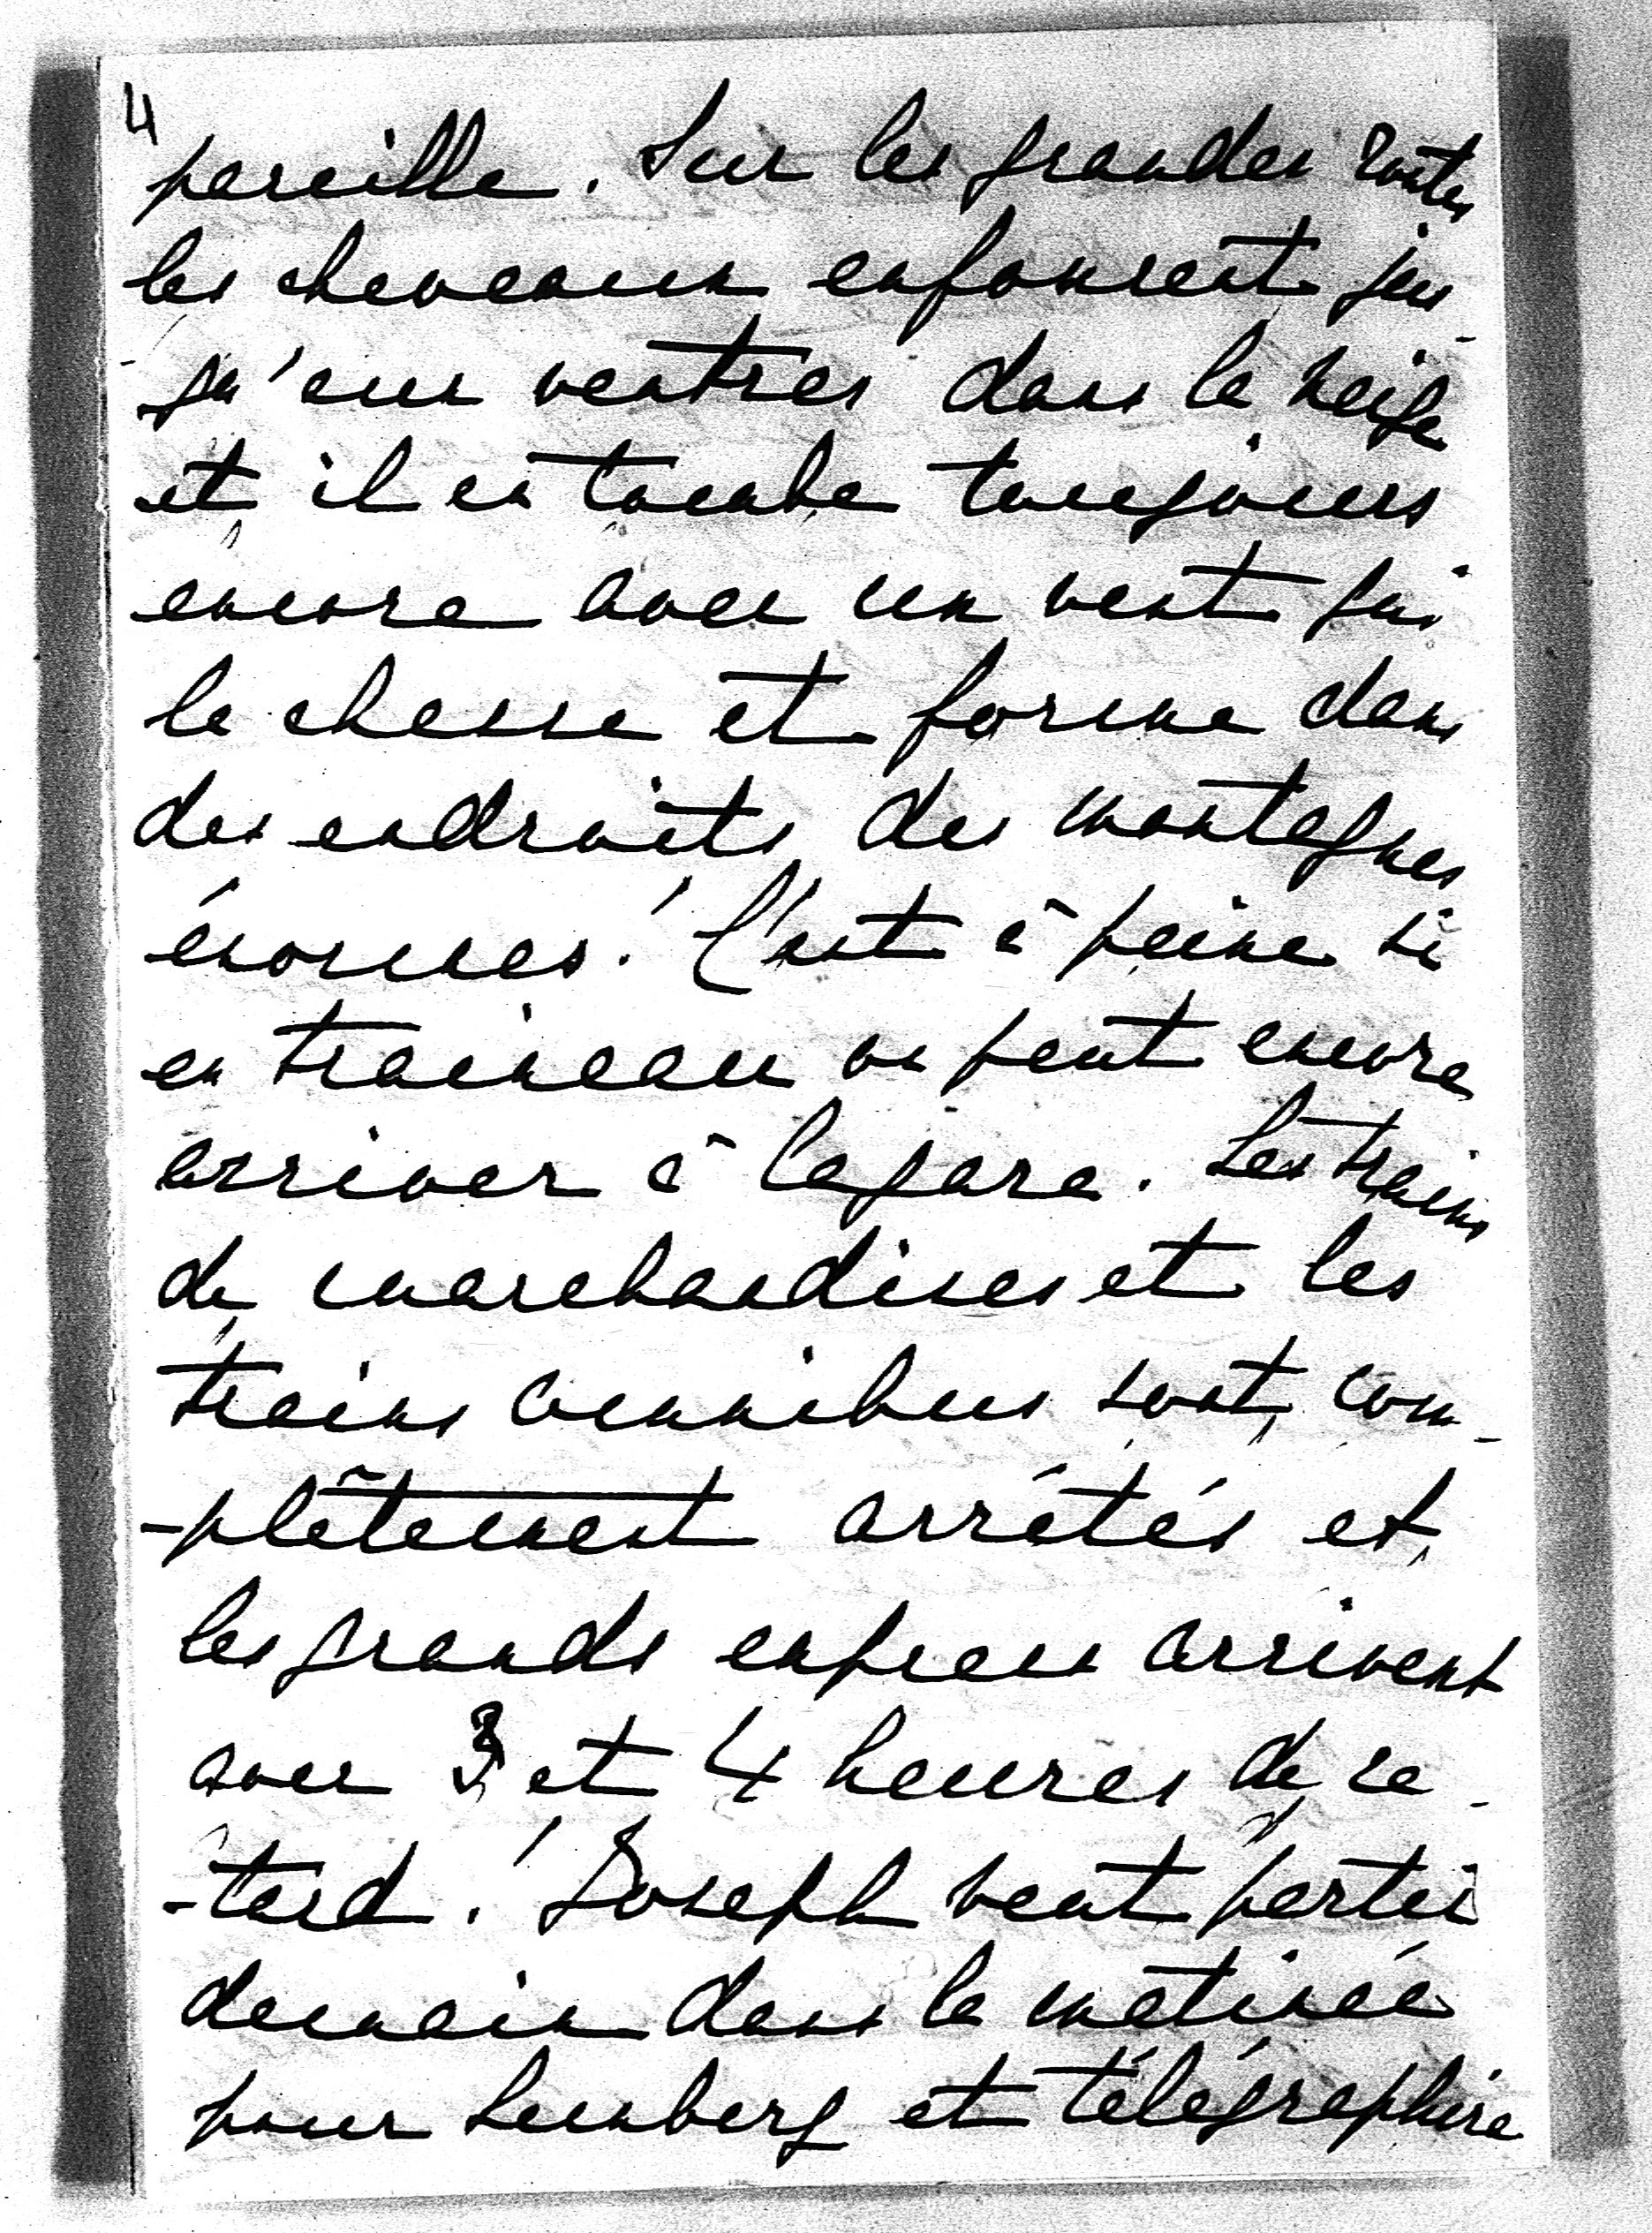 4
pareille. Sur les grandes routes
les cheveaux enfoncent jus-
-qu'aux ventres dans la neige
et il en tombe toujours
encore avec un vent qui
la chasse et forme dans
des endroits des montagnes
énormes! C'est à peine si
en traineau on peut encore
arriver à la gare. Les trains
de marchandises et les
trains omnibus sont com-
-plètement arrêtés et
les grands express arrivent
avec 3 et 4 heures de re-
-tard! Joseph veut partir
demain dans la matinée
pour Lemberg et télégraphire